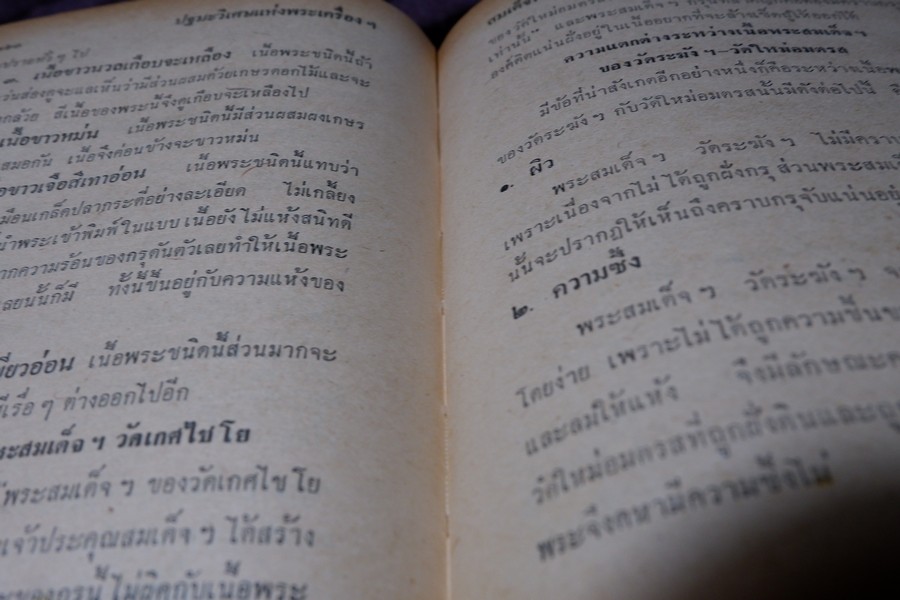 ปฐมะวิเศษแห่งพระเครื่อง ฯ
เนื้อขาวนวลเกือบจะเหลือง เนื้อพระชนิดนี้ถ้า
แว่นส่องดูจะแลเห็นว่ามีส่วนผสมด้วยเกษรดอกไม้และจะ
กล้วย สีเนื้อของพระนี้จึงดูเกือบจะเหลืองไป
เนื้อขาวหม่น เนื้อพระชนิดนี้มีส่วนผสมผงเกษร
เสมอกัน เนื้อจึงค่อนข้างจะขาวหม่น
ขาวเจือสีเทาอ่อน เนื้อพระชนิดนี้แทบว่า
เหมือนเกล็ดปลากระดี่อย่างละเอียด ไม่เกลี้ยง
นำพระเข้าพิมพ์ในแบบ เนื้อยังไม่แห้งสนิทดี
จากความร้อนของกรุดันตัวเลยทำให้เนื้อพระ
เลยนั้นก็มี ทั้งนี้ขึ้นอยู่กับความแห้งของ
เขียวอ่อน เนื้อพระชนิดนี้ส่วนมากจะ
มีเรื่อ ๆ ต่างออกไปอีก
พระสมเด็จ ฯ วัดเกศไชโย
พระสมเด็จ ฯ ของวัดเกศไชโย
เจ้าประคุณสมเด็จ ฯ ได้สร้าง
ของกรุนี้ไม่ผิดกับเนื้อพระ
สมเด็จ
ของวัดใหม่อมตรส และพระสมเด็จ ฯ
เท่านั้น
องค์คิดแน่นฝังอยู่ในเนื้ออยากที่จะล้างเช็ดถูให้ออกได้
ความแตกต่างระหว่างเนื้อพระสมเด็จฯ
ของวัดระฆัง ฯ – วัดใหม่อมตรส
มีข้อที่น่าสังเกตอีกอย่างหนึ่งก็คือระหว่างเนื้อพระ
ของวัดระฆัง ฯ กับวัดใหม่อมตรสนั้นมีดังต่อไปนี้
๑. ผิว
พระสมเด็จ ฯ วัดระฆัง ฯ ไม่มีความ
เพราะเนื่องจากไม่ได้ถูกฝังกรุ ส่วนพระสมเด็จ
นั้นจะปรากฏให้เห็นถึงคราบกรุจับแน่นอยู่
๒. ความซึ้ง
พระสมเด็จ ฯ วัดระฆัง ฯ
โดยง่าย เพราะไม่ได้ถูกความชื้น
และลมให้แห้ง จึงมีลักษณะ
วัดใหม่อมตรสที่ถูกฝังดินและ
พระจึงคหามีความซึ้งไม่